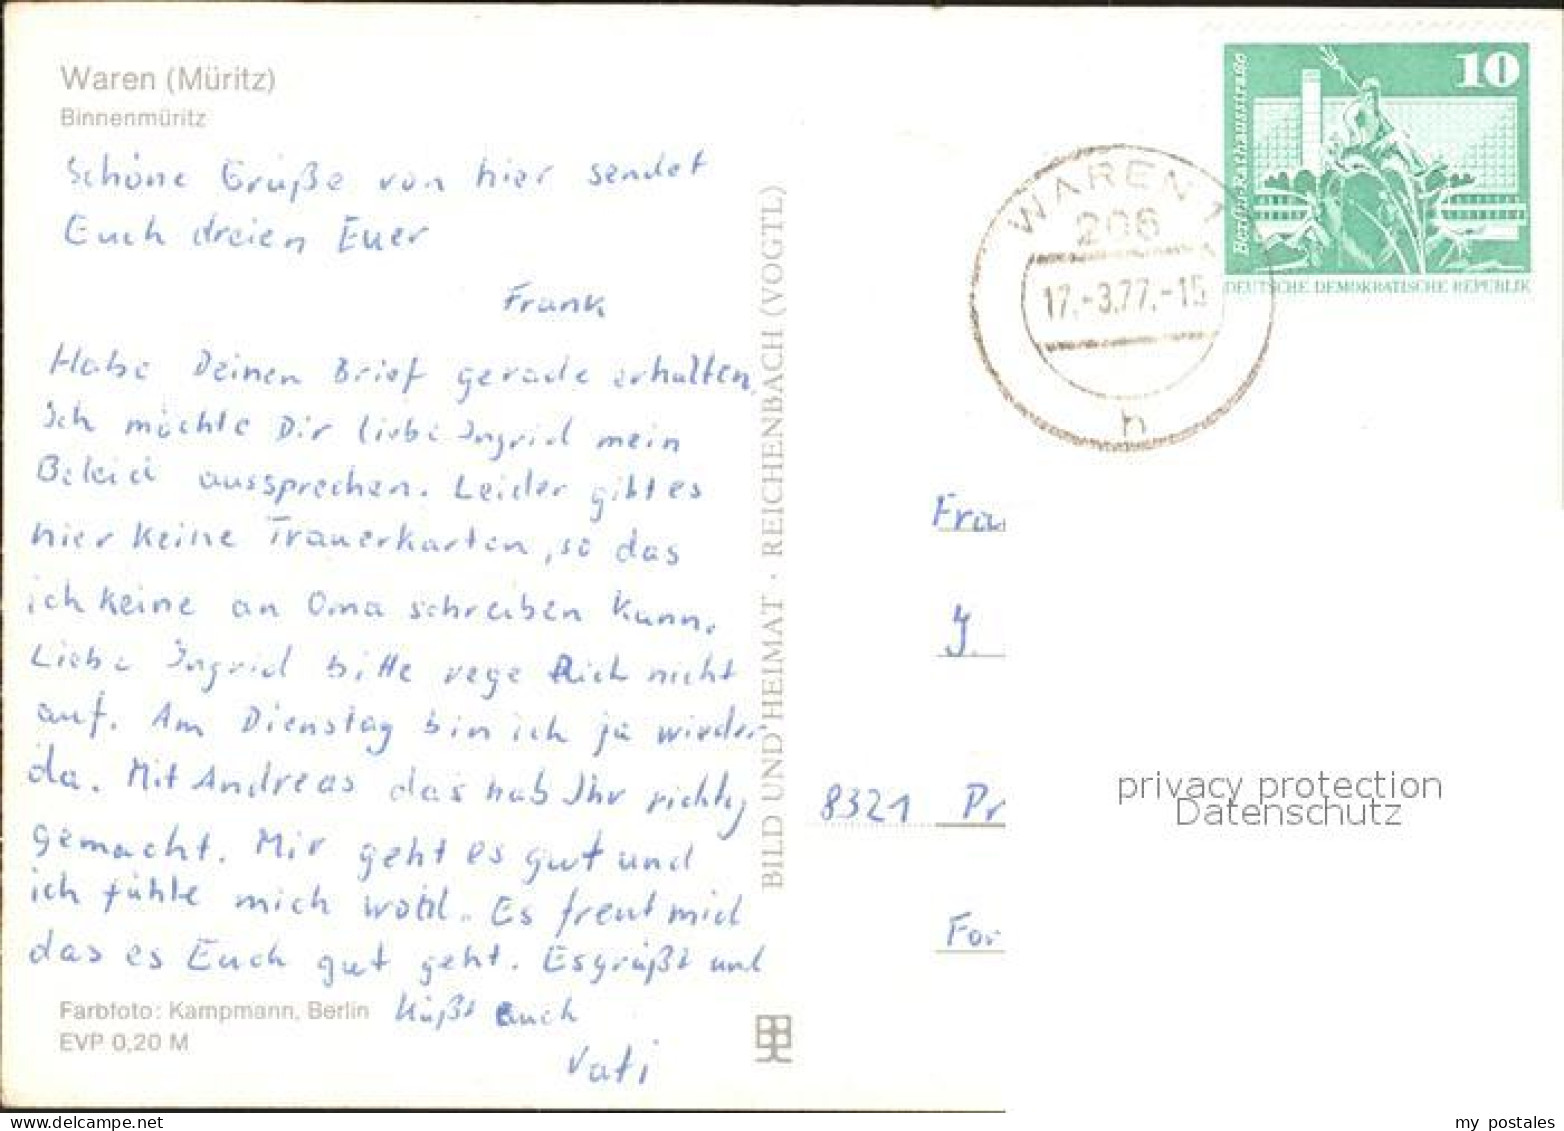 Waren (Müritz)
Binnenmüritz
Schöne Grüße von hier sendet
Euch dreien Euer
Frank
Habe Deinen Brief gerade erhalten.
Ich möchte Dir liebe Ingrid mein
Beleid aussprechen. Leider gibt es
hier keine Trauerkarten, so das
ich keine an Oma schreiben kann.
Liebe Ingrid bitte rege Dich nicht
auf. Am Dienstag bin ich ja wieder
da. Mit Andreas das hab Ihr richtig
gemacht. Mir geht es gut und
ich fühle mich wohl. Es freut mich
das es Euch gut geht. Es grüßt und
küßt Euch
Vati
Farbfoto: Kampmann, Berlin
EVP 0,20 M
BILD UND HEIMAT · REICHENBACH (VOGTL)
WAREN 1
206
17.-3.77.-15
h
10
Berlin-Rathausstraße
DEUTSCHE DEMOKRATISCHE REPUBLIK
Frau
J.
8321 Pr
For
privacy protection
Datenschutz
www.delcampe.net
my_postales